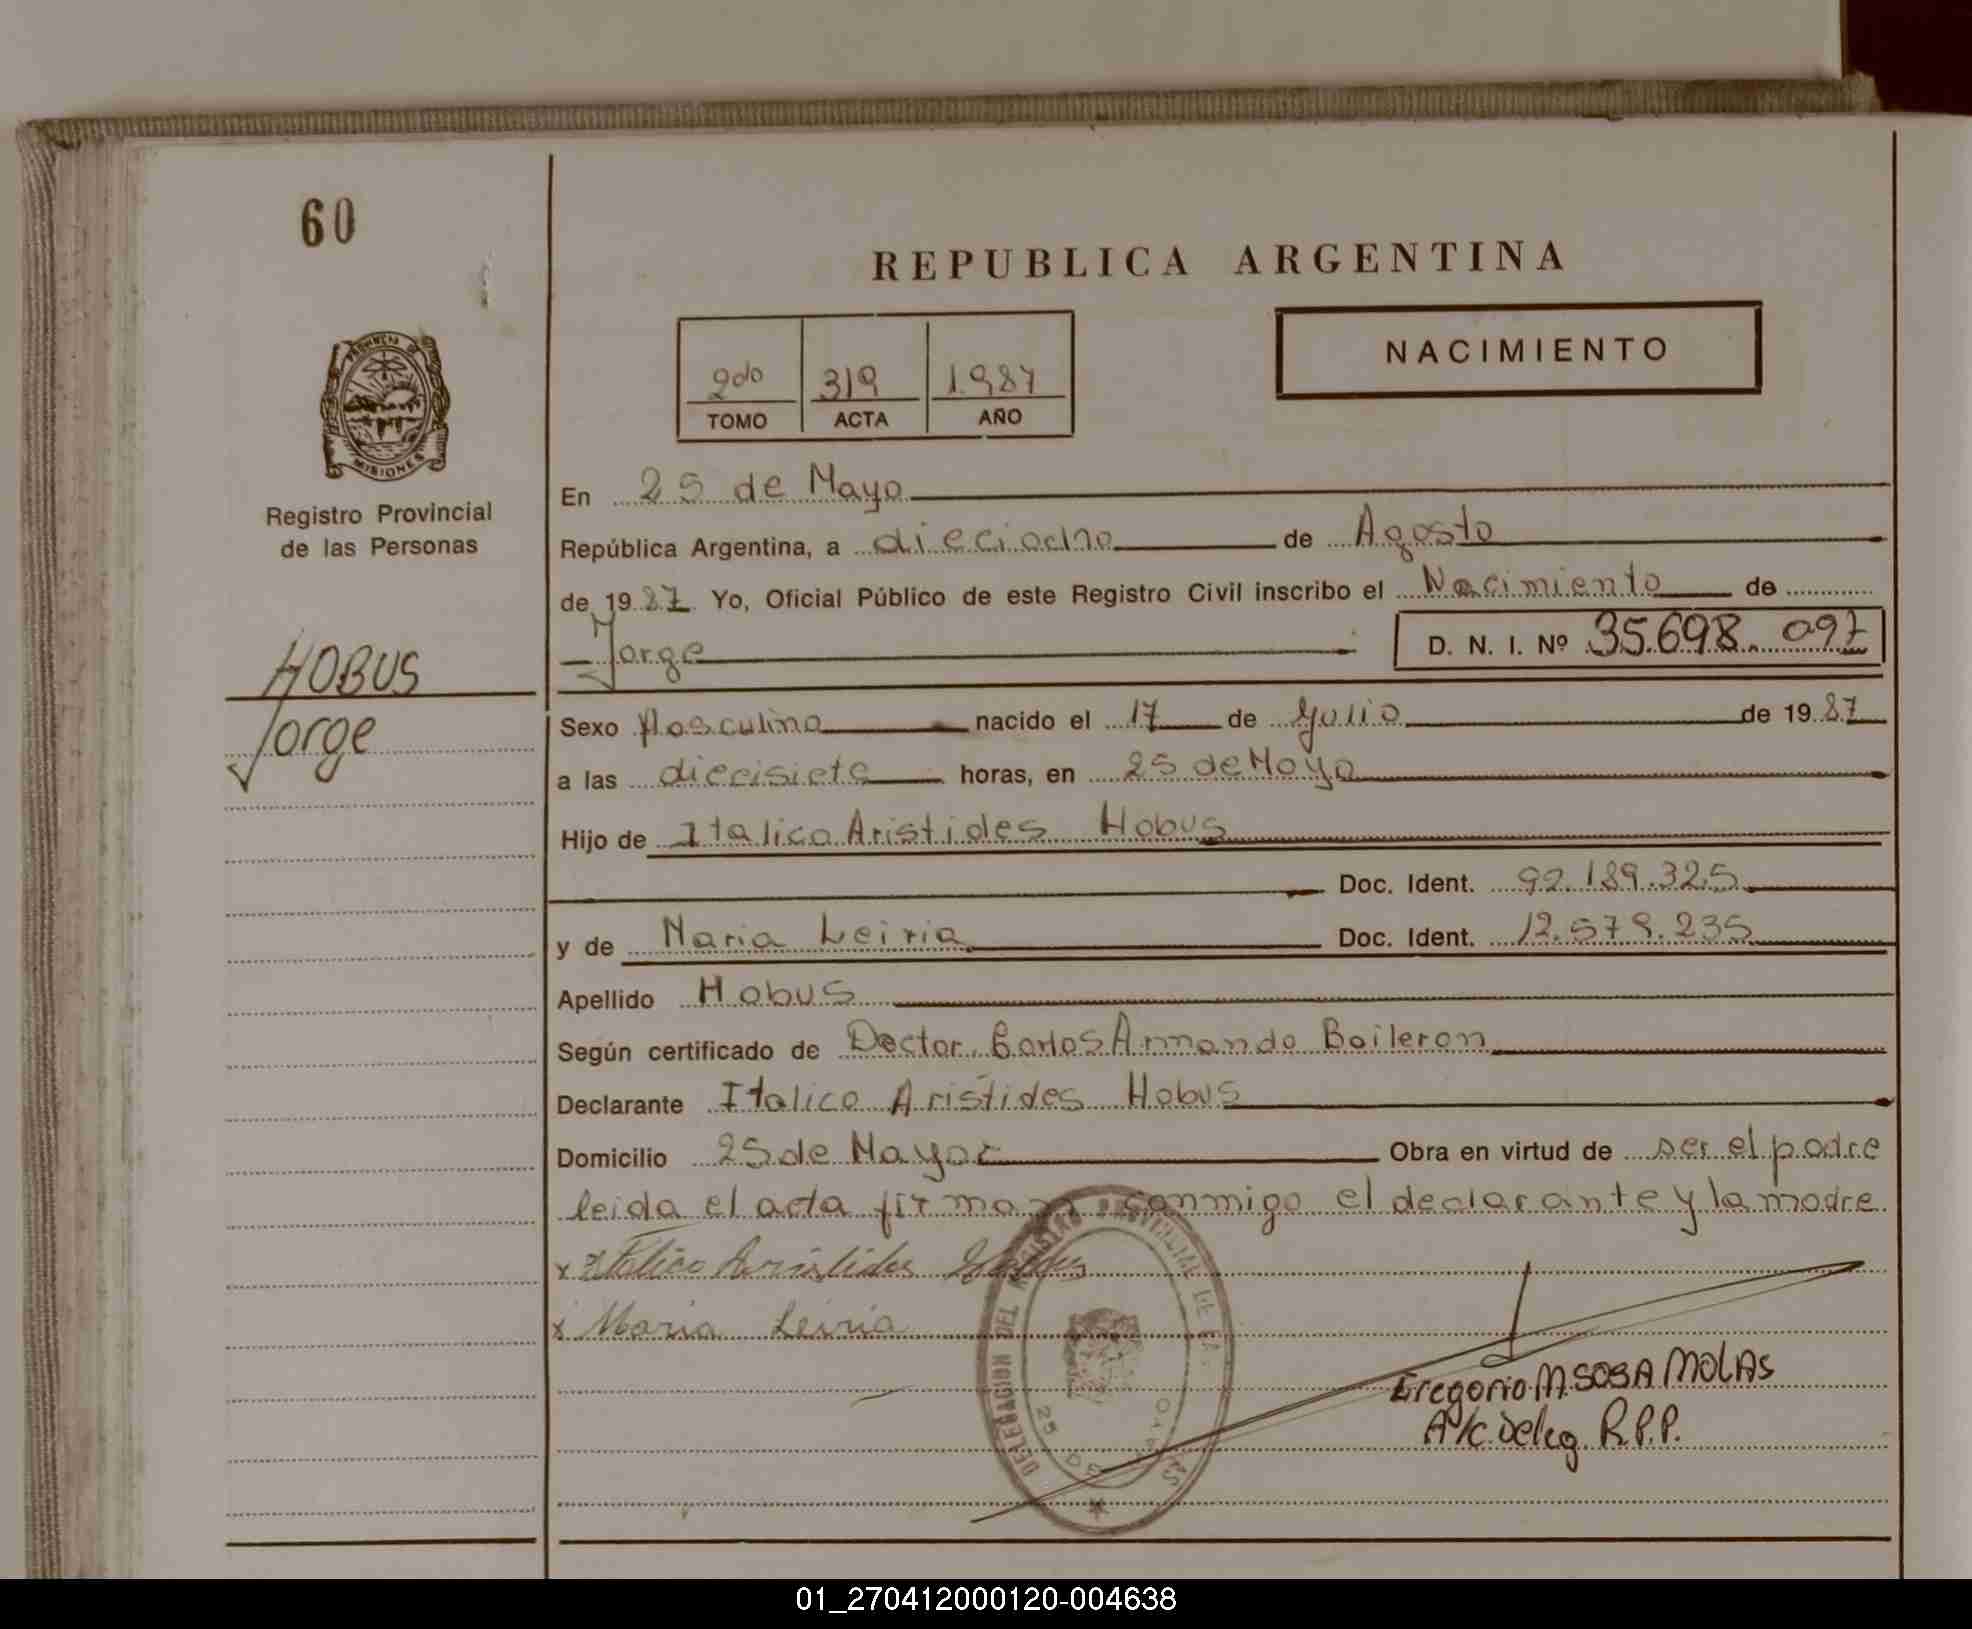 60
REPUBLICA ARGENTINA
NACIMIENTO
2do 319 1.987
TOMO ACTA AÑO
PROVINCIA DE
MISIONES
Registro Provincial
de las Personas
HOBUS
Jorge
En 25 de Mayo
República Argentina, a dieciocho de Agosto
de 1987 Yo, Oficial Público de este Registro Civil inscribo el Nacimiento de
Jorge D. N. I. Nº 35.698.097
Sexo Masculino nacido el 17 de Julio de 1987
a las diecisiete horas, en 25 de Mayo
Hijo de Italico Aristides Hobus
Doc. Ident. 92.189.325
y de Maria Leiria Doc. Ident. 12.579.235
Apellido Hobus
Según certificado de Doctor Carlos Armando Boileron
Declarante Italico Aristides Hobus
Domicilio 25 de Mayo Obra en virtud de ser el padre
leida el acta firman conmigo el declarante y la madre
x Italico Aristides Hobus
x Maria Leiria
DELEGACION DEL REGISTRO PROVINCIAL DE LAS
25 DE MAYO
Gregorio M. SOSA MOLAS
A/c. Deleg. R.P.P.
01_270412000120-004638